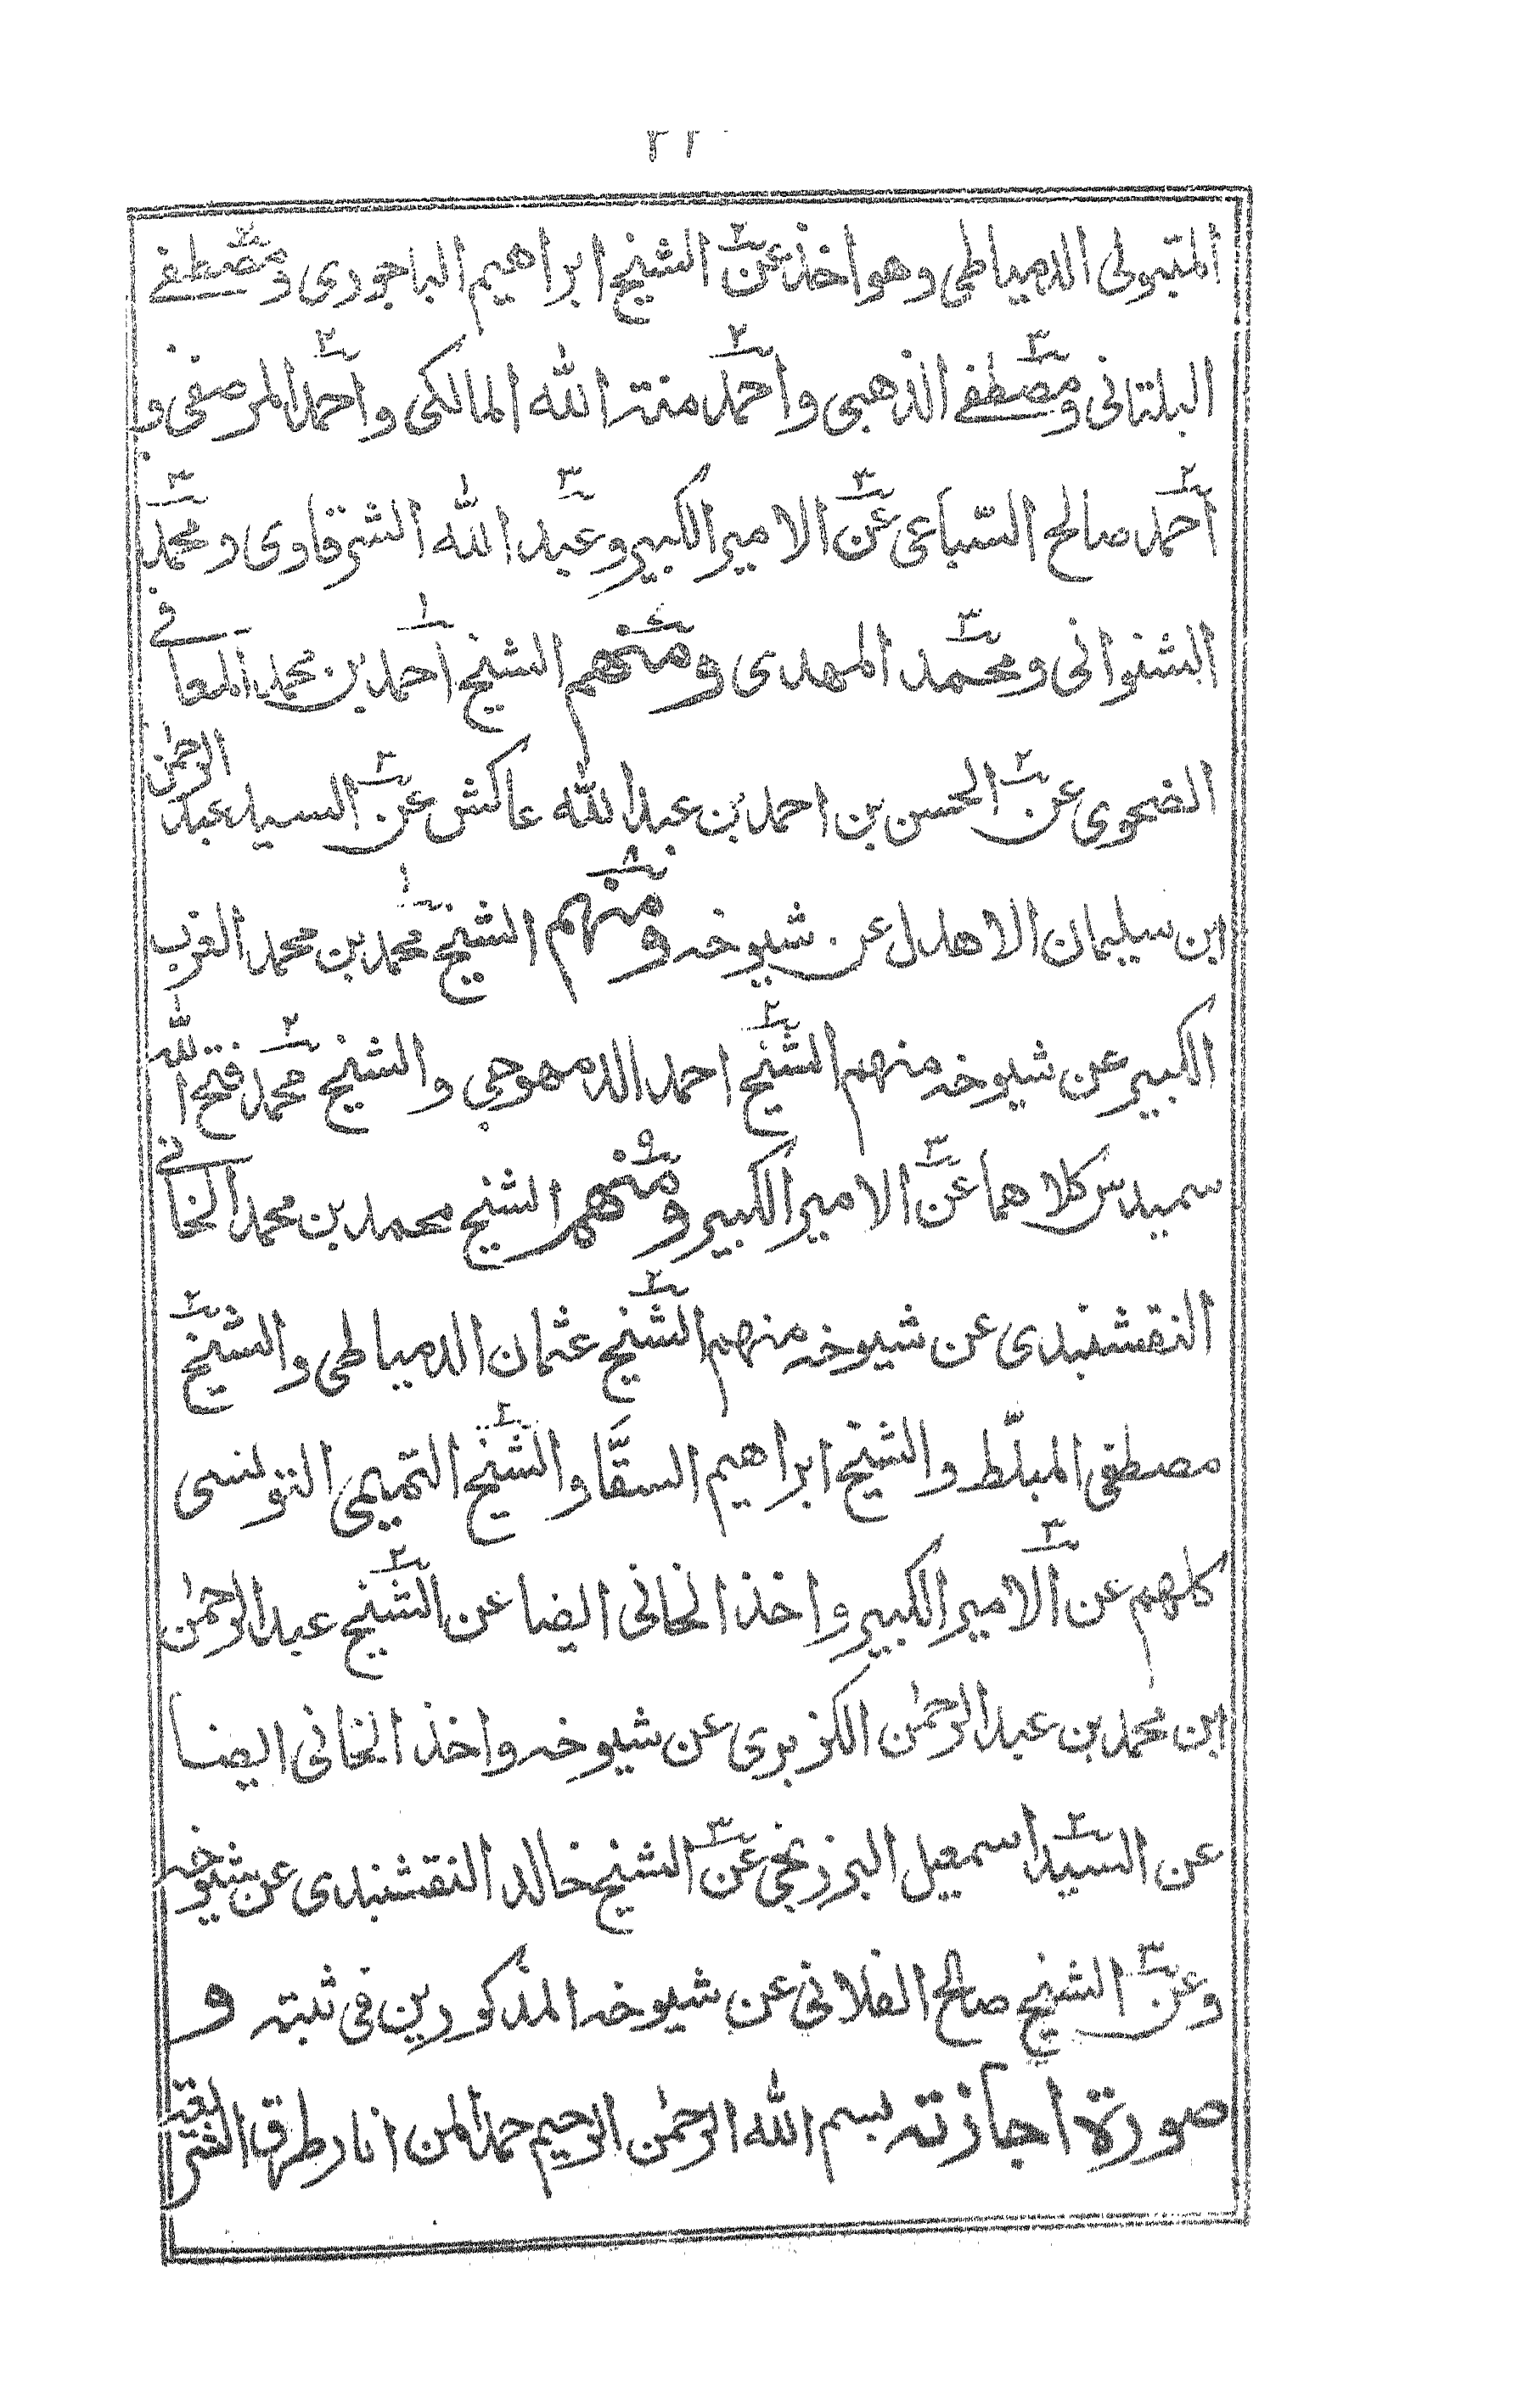 المتبولى الدمياطى وهو اخذ عن الشيخ ابراهيم الباجورى ومصطفے
البلتانى ومصطفے الذهبى واحمد منة الله المالكى واحمد المرصفى و
احمد صالح السّباعى عن الامير الكبير وعبد الله الشرقاوى ومحمد
الشنوانى ومحمد المهدى ومنهم الشيخ احمد بن محمد المعافے
الضحوى عن الحسن بن احمد بن عبد الله عاكش عن السيد عبد الرحمٰن
ابن سليمان الاهدل عن شيوخه ومنهم الشيخ محمد بن محمد العزب
الكبير عن شيوخه منهم الشيخ احمد الدمهوجى والشيخ محمد فتح الله
سميدس كلاهما عن الامير الكبير ومنهم الشيخ محمد بن محمد الخانے
النقشبندى عن شيوخه منهم الشيخ عثمان الدمياطى والشيخ
مصطفى المبلّط والشيخ ابراهيم السقَّا والشيخ التميمى التونسى
كلهم عن الامير الكبير واخذ الخانى ايضا عن الشيخ عبد الرحمٰن
ابن محمد بن عبد الرحمٰن الكزبرى عن شيوخه واخذ الخانى ايضا
عن السيد اسمعيل البرزنجى عن الشيخ خالد النقشبندى عن شيوخه
وعن الشيخ صالح الفلانى عن شيوخه المذكورين فى ثبته و
صورة اجازته بسم الله الرحمٰن الرحيم حمدا لمن انار طرق الشريعة